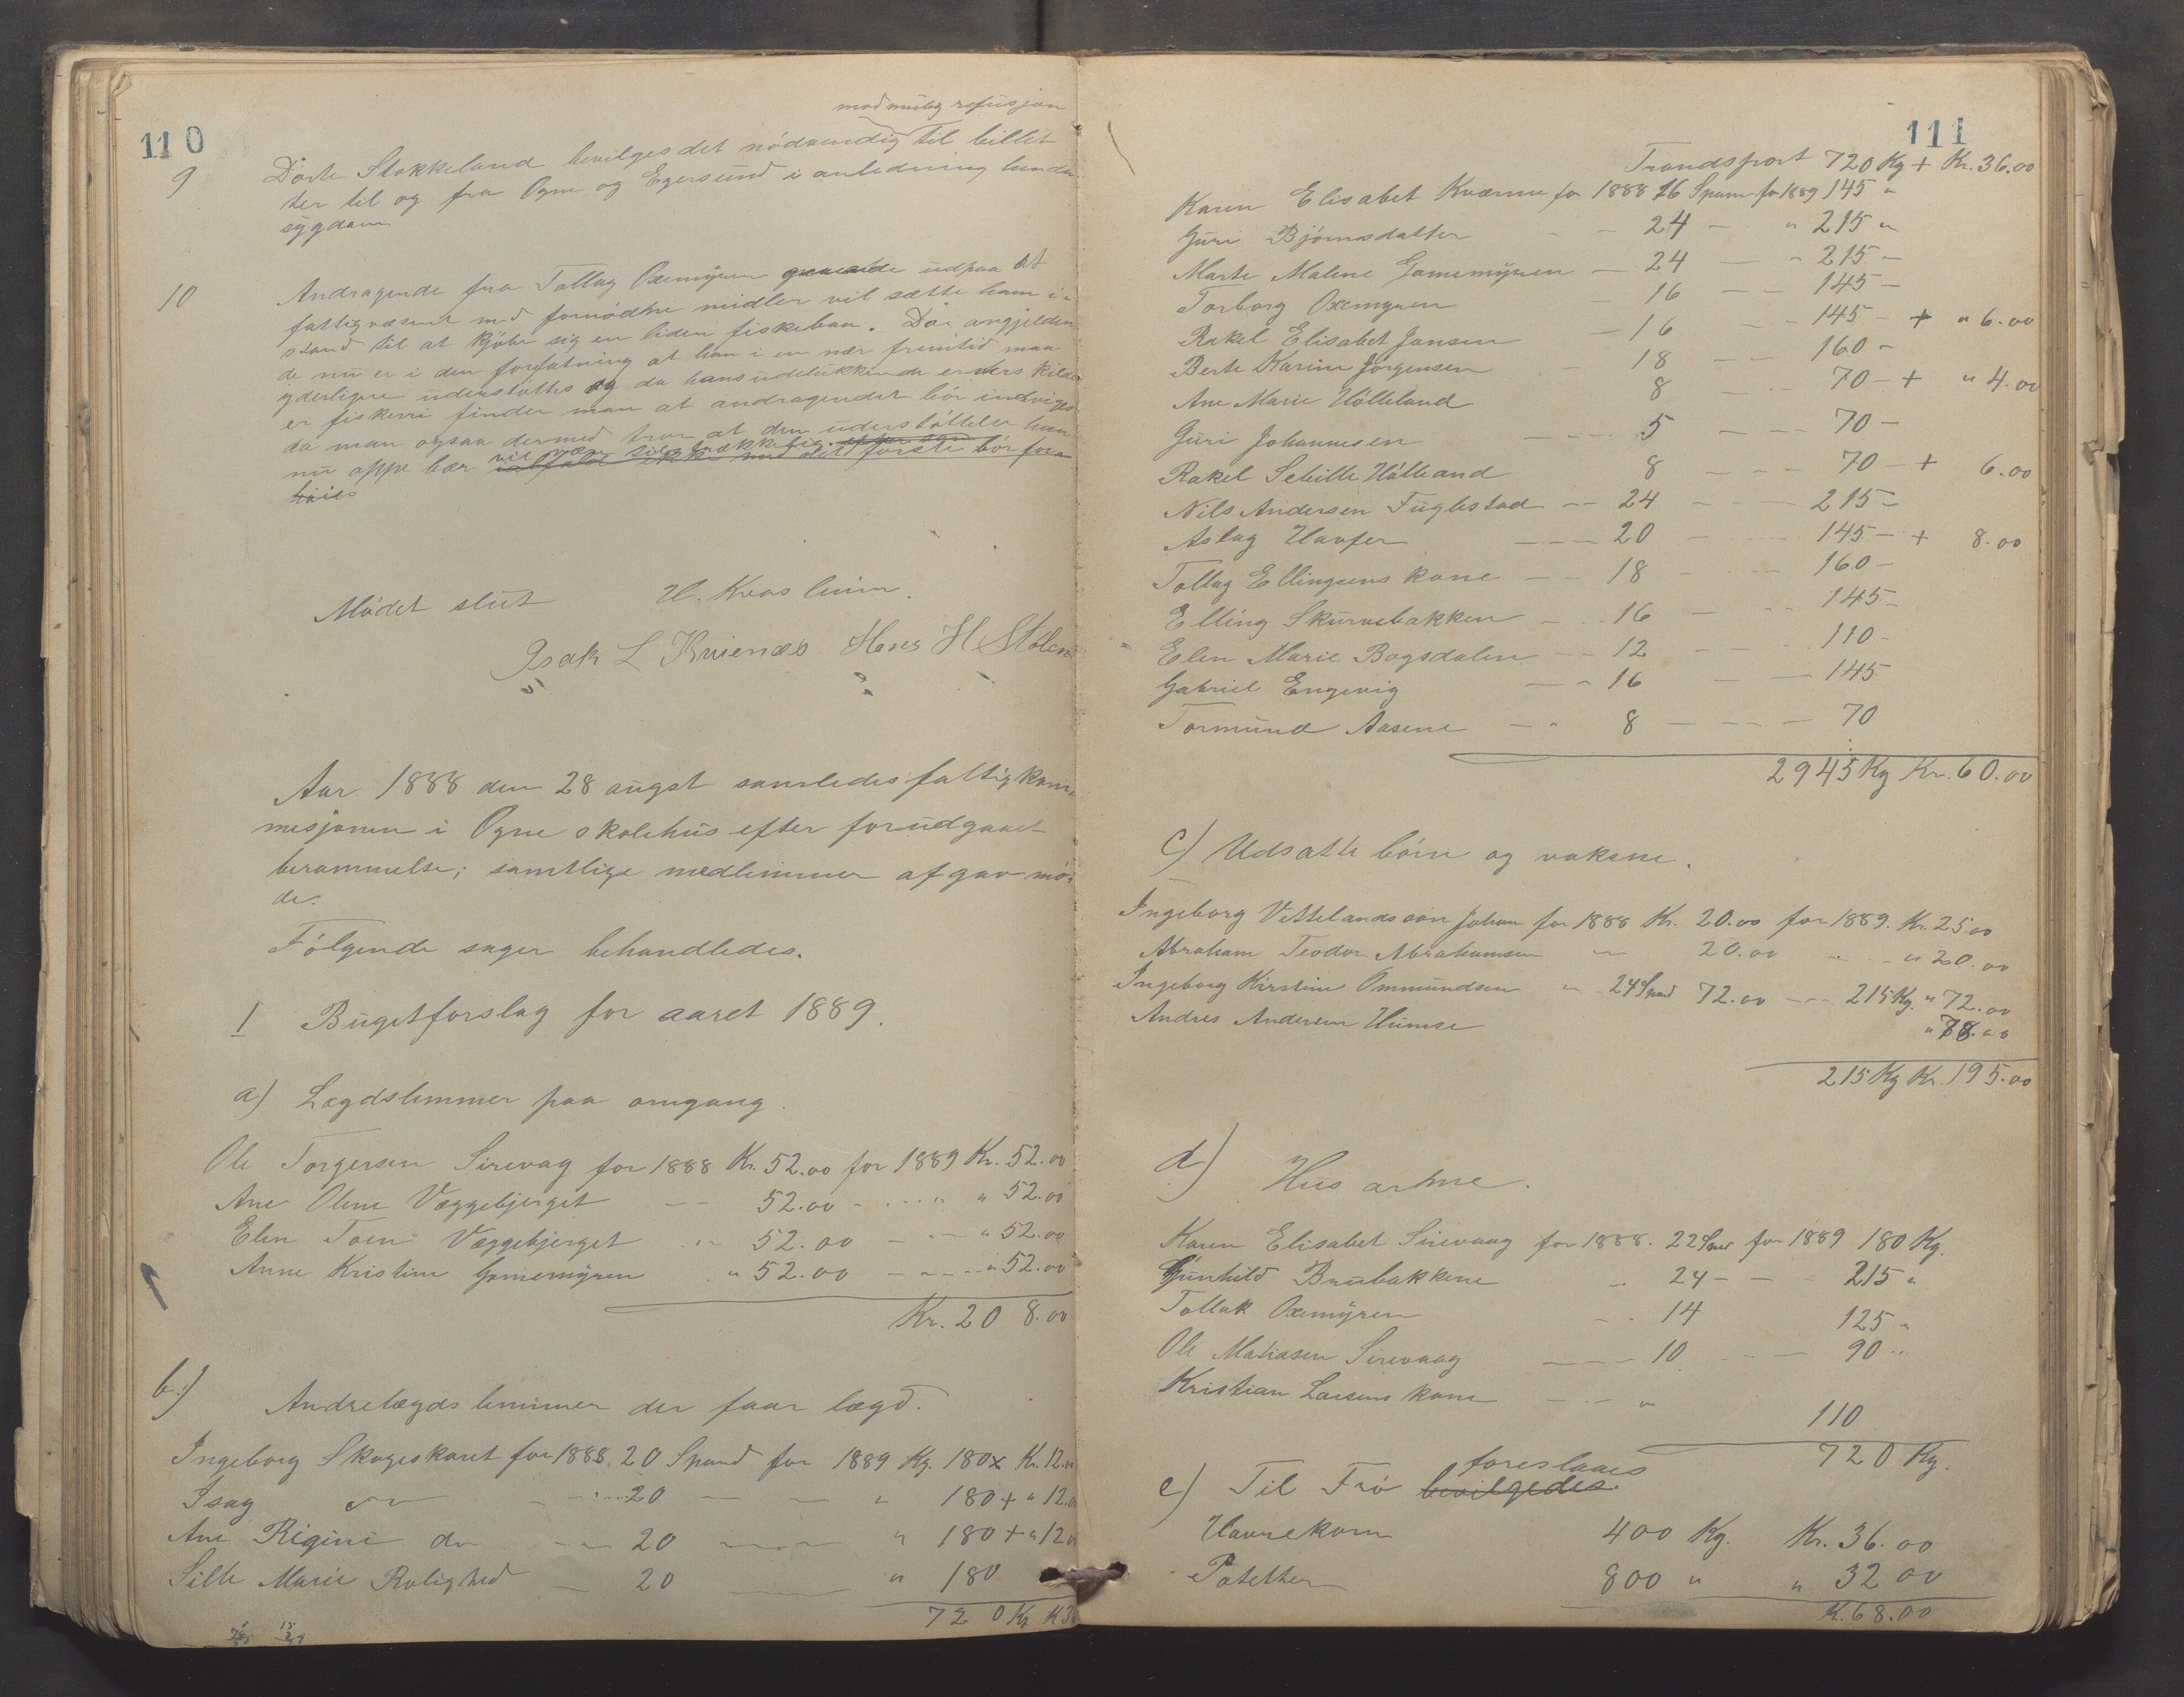 110
mod mulig refusjon
9 Dorte Stokkeland bevilges det nödvendig til billet
ter til og fra Ogne og Egersund i anledning
sygdom
10 Andragende fra Tollag Oxemyren udpaa at
fattigvæsenet med fornödne midler vil sætte ham i
stand til at kjöbe sig en liden fiskebaa. Da angjelden
de nu er i den forfatning at han i en nær fremtid maa
yderligere understöttes og da hans udelukkende ervers kilde
er fiskeri finder man at andragendet bör indviges
da man ogsaa dermed tror at den understöttelse han
nu oppe bær vil være tilstrækkelig. efter som
ialfald ikke med det förste bör for
höies
Mödet slut H. Kvasheim.
Isak L Kvienæs Hans H Stölen
Aar 1888 den 28 augst samledes fattigkom
mesjonen i Ogne skolehus efter forudgaaet
berammelse; samtlige medlemmer afgav mö
de.
Fölgende sager behandledes.
1 Bugetforslag for aaret 1889.
a) Lægdslemmer paa omgang.
Ole Torgersen Sirevag for 1888 Kr. 52.00 for 1889 Kr. 52.00
Ane Oline Væggebjerget — 52.00 - . . . " " 52.00
Elen Væggebjerget " 52.00 — . — " 52.00
Anne Kristine Gomemyren " 52.00 — — — " 52.00
Kr. 208.00
b.) Andrelægds lemmer der faar lægd.
Ingeborg Skogeskaret for 1888 20 Spand for 1889 Kg. 180 x Kr. 12.00
Isag do — 20 — — " 180 + " 12.00
Ane Regine do — 20 — " 180 + " 12.00
Sille Marie Rolighed — 20 — " 180
720 Kg K 3
111
Trandsport 720 Kg + Kr. 36.00
Karen Elisabet Kværne for 1888 16 Spann for 1889 145 "
Guri Björnsdatter - - 24 — " 215 "
Marte Malene Gomemyren — 24 — " 215 -
Torborg Oxemyren — 16 — — 145 -
Rakel Elisabet Jansen — 16 — — 145 - + " 6.00
Berte Karine Jörgensen - 18 — — 160 -
Ane Marie Hölleland 8 — 70 - + " 4.00
Guri Johannesen — — 5 — — 70 -
Rakel Sebille Hölleland 8 — — 70 - + 6.00
Nils Andersen Fuglestad — 24 — — 215 -
Aslag Havfer — — 20 — — 145 - + 8.00
Tollag Ellingsens kone — - 18 — — 160 -
Elling Skurvebakken — - 16 — — 145 -
Elen Marie Bogsdalen — 12 — — 110 -
Gabriel Engevig — - 16 — — 145
Tormund Aasene — - 8 — — — 70
2945 Kg Kr. 60.00
c) Udsatte börn og voksne.
Ingeborg Vettelands sön Johan for 1888 Kr. 20.00 for 1889. Kr. 25.00
Abraham Teodor Abrahamsen — 20.00 - . - " 20.00
Ingeborg Kirstine Ommundsen " 24 Spand 72.00 — 215 Kg. " 72.00
Andres Andersen Humse " 78.00
215 Kg Kr. 195.00
d) Hus arme.
Karen Elisabet Sirevaag for 1888. 22 Spand for 1889 180 Kg.
Gunhild Brubakkene - 24 - - - 215 "
Tollak Oxemyren - . 14 125 "
Ole Matiasen Sirevaag — — 10 — — 90 "
Kristian Larsens kone — - " 110
720 Kg.
foreslaaes
e) Til Frö bevilgedes.
Havrekorn 400 Kg. Kr. 36.00
Potetter 800 " " 32 00
K. 68.00